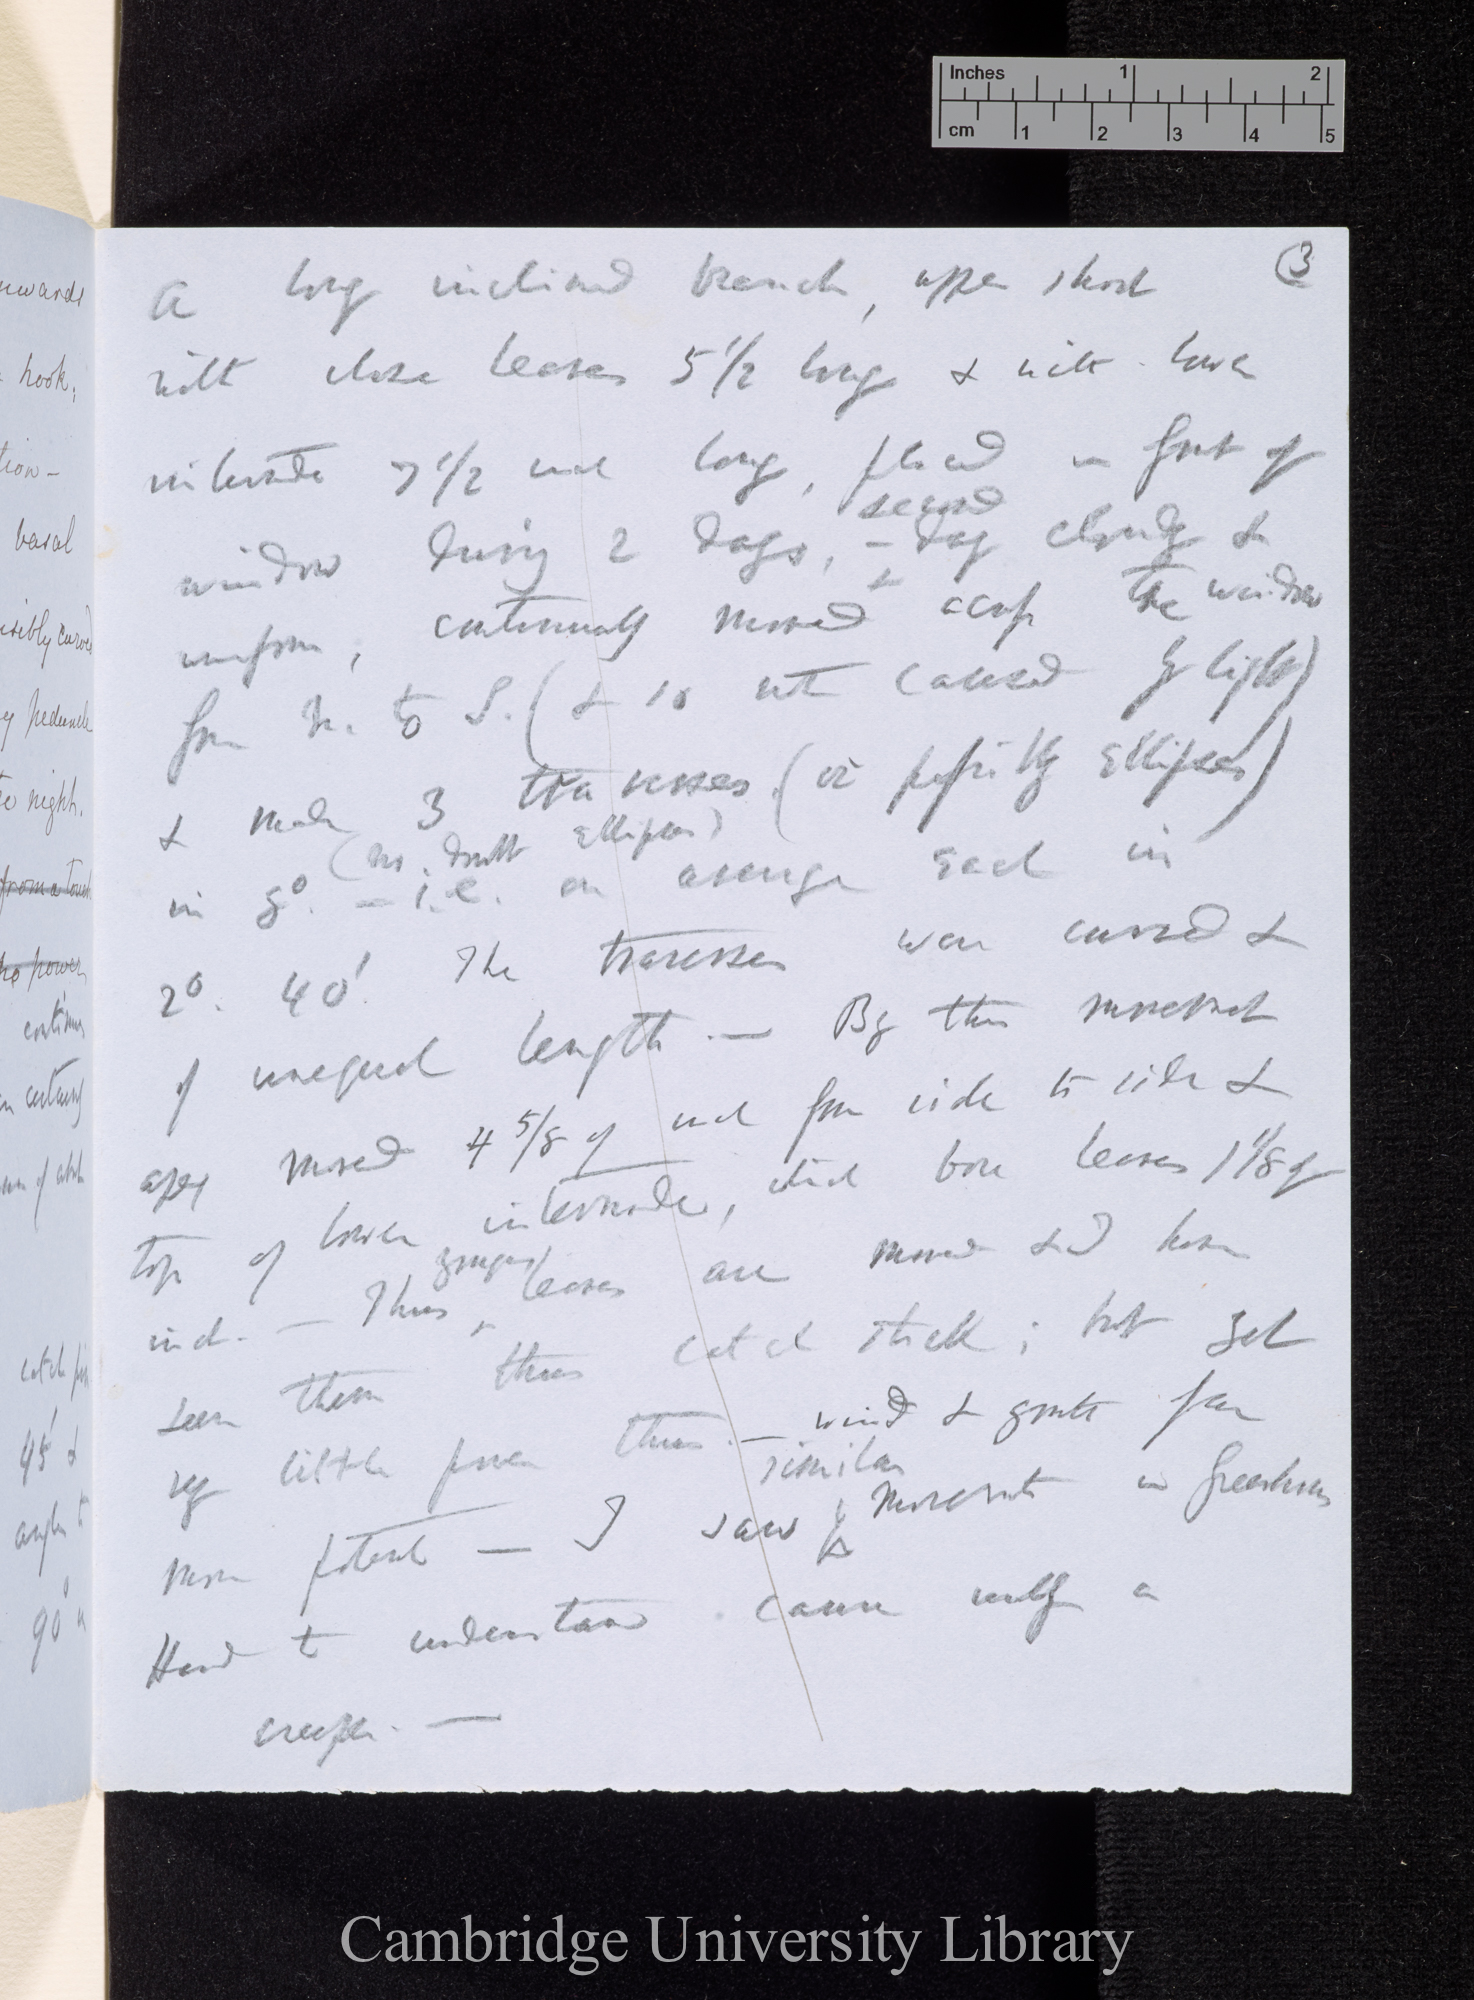 Inches 1 2
cm 1 2 3 4 5
3
A long inclined branch, upper shoot
with close leaves 5 1/2 long & with lower
internode 7 1/2 inch long, placed in front of
window during 2 days, – second day cloudy &
uniform, continually moved across the window
from N. to S. (& so not caused by light)
& made 3 traverses (or possibly ellipses)
(no doubt ellipses)
in 8°. — i.e. on average each in
2°. 40'. The traverses were curved &
of unequal length. — By this movement
apex moved 4 5/8 of inch from side to side &
top of lower internode, which bore leaves 1 1/8 of
inch. — Thus young leaves are moved & I have
seen them thus catch stick; but yet
very little power thus. — wind & growth far
more potent — I saw similar movements in Greenhouse
Hard to understand. cause unless a
creeper. —
uwards
hook;
tion –
basal
isibly curved
y peduncle
to night.
from a touch
no power
continues
catch
45' &
angles to
90°
Cambridge University Library